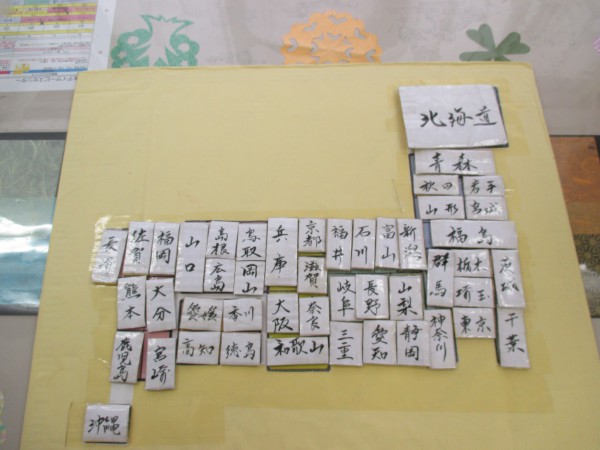 北海道
青森
秋田 岩手
山形 宮城
福島
長崎 佐賀 福岡 山口 島根 鳥取 兵庫 京都 福井 石川 富山 新潟
広島 岡山 滋賀 群馬 栃木 茨城
熊本 大分 愛媛 香川 大阪 奈良 岐阜 長野 山梨 埼玉
鹿児島 宮崎 高知 徳島 和歌山 三重 愛知 静岡 神奈川 東京 千葉
沖縄